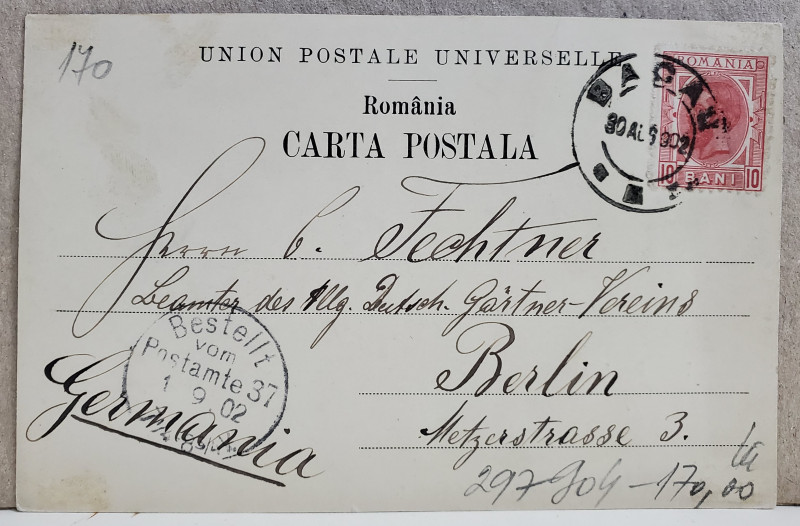 170
UNION POSTALE UNIVERSELLE
ROMANIA
BACAU
30 AUG 902
10 BANI 10
România
CARTA POSTALA
Herrn C. Fechtner
Beamter des Allg. Deutsch. Gärtner-Vereins
Bestellt
vom
Postamte 37
1 9 02
Berlin
Germania
Metzerstrasse 3.
297 904 – 170,00